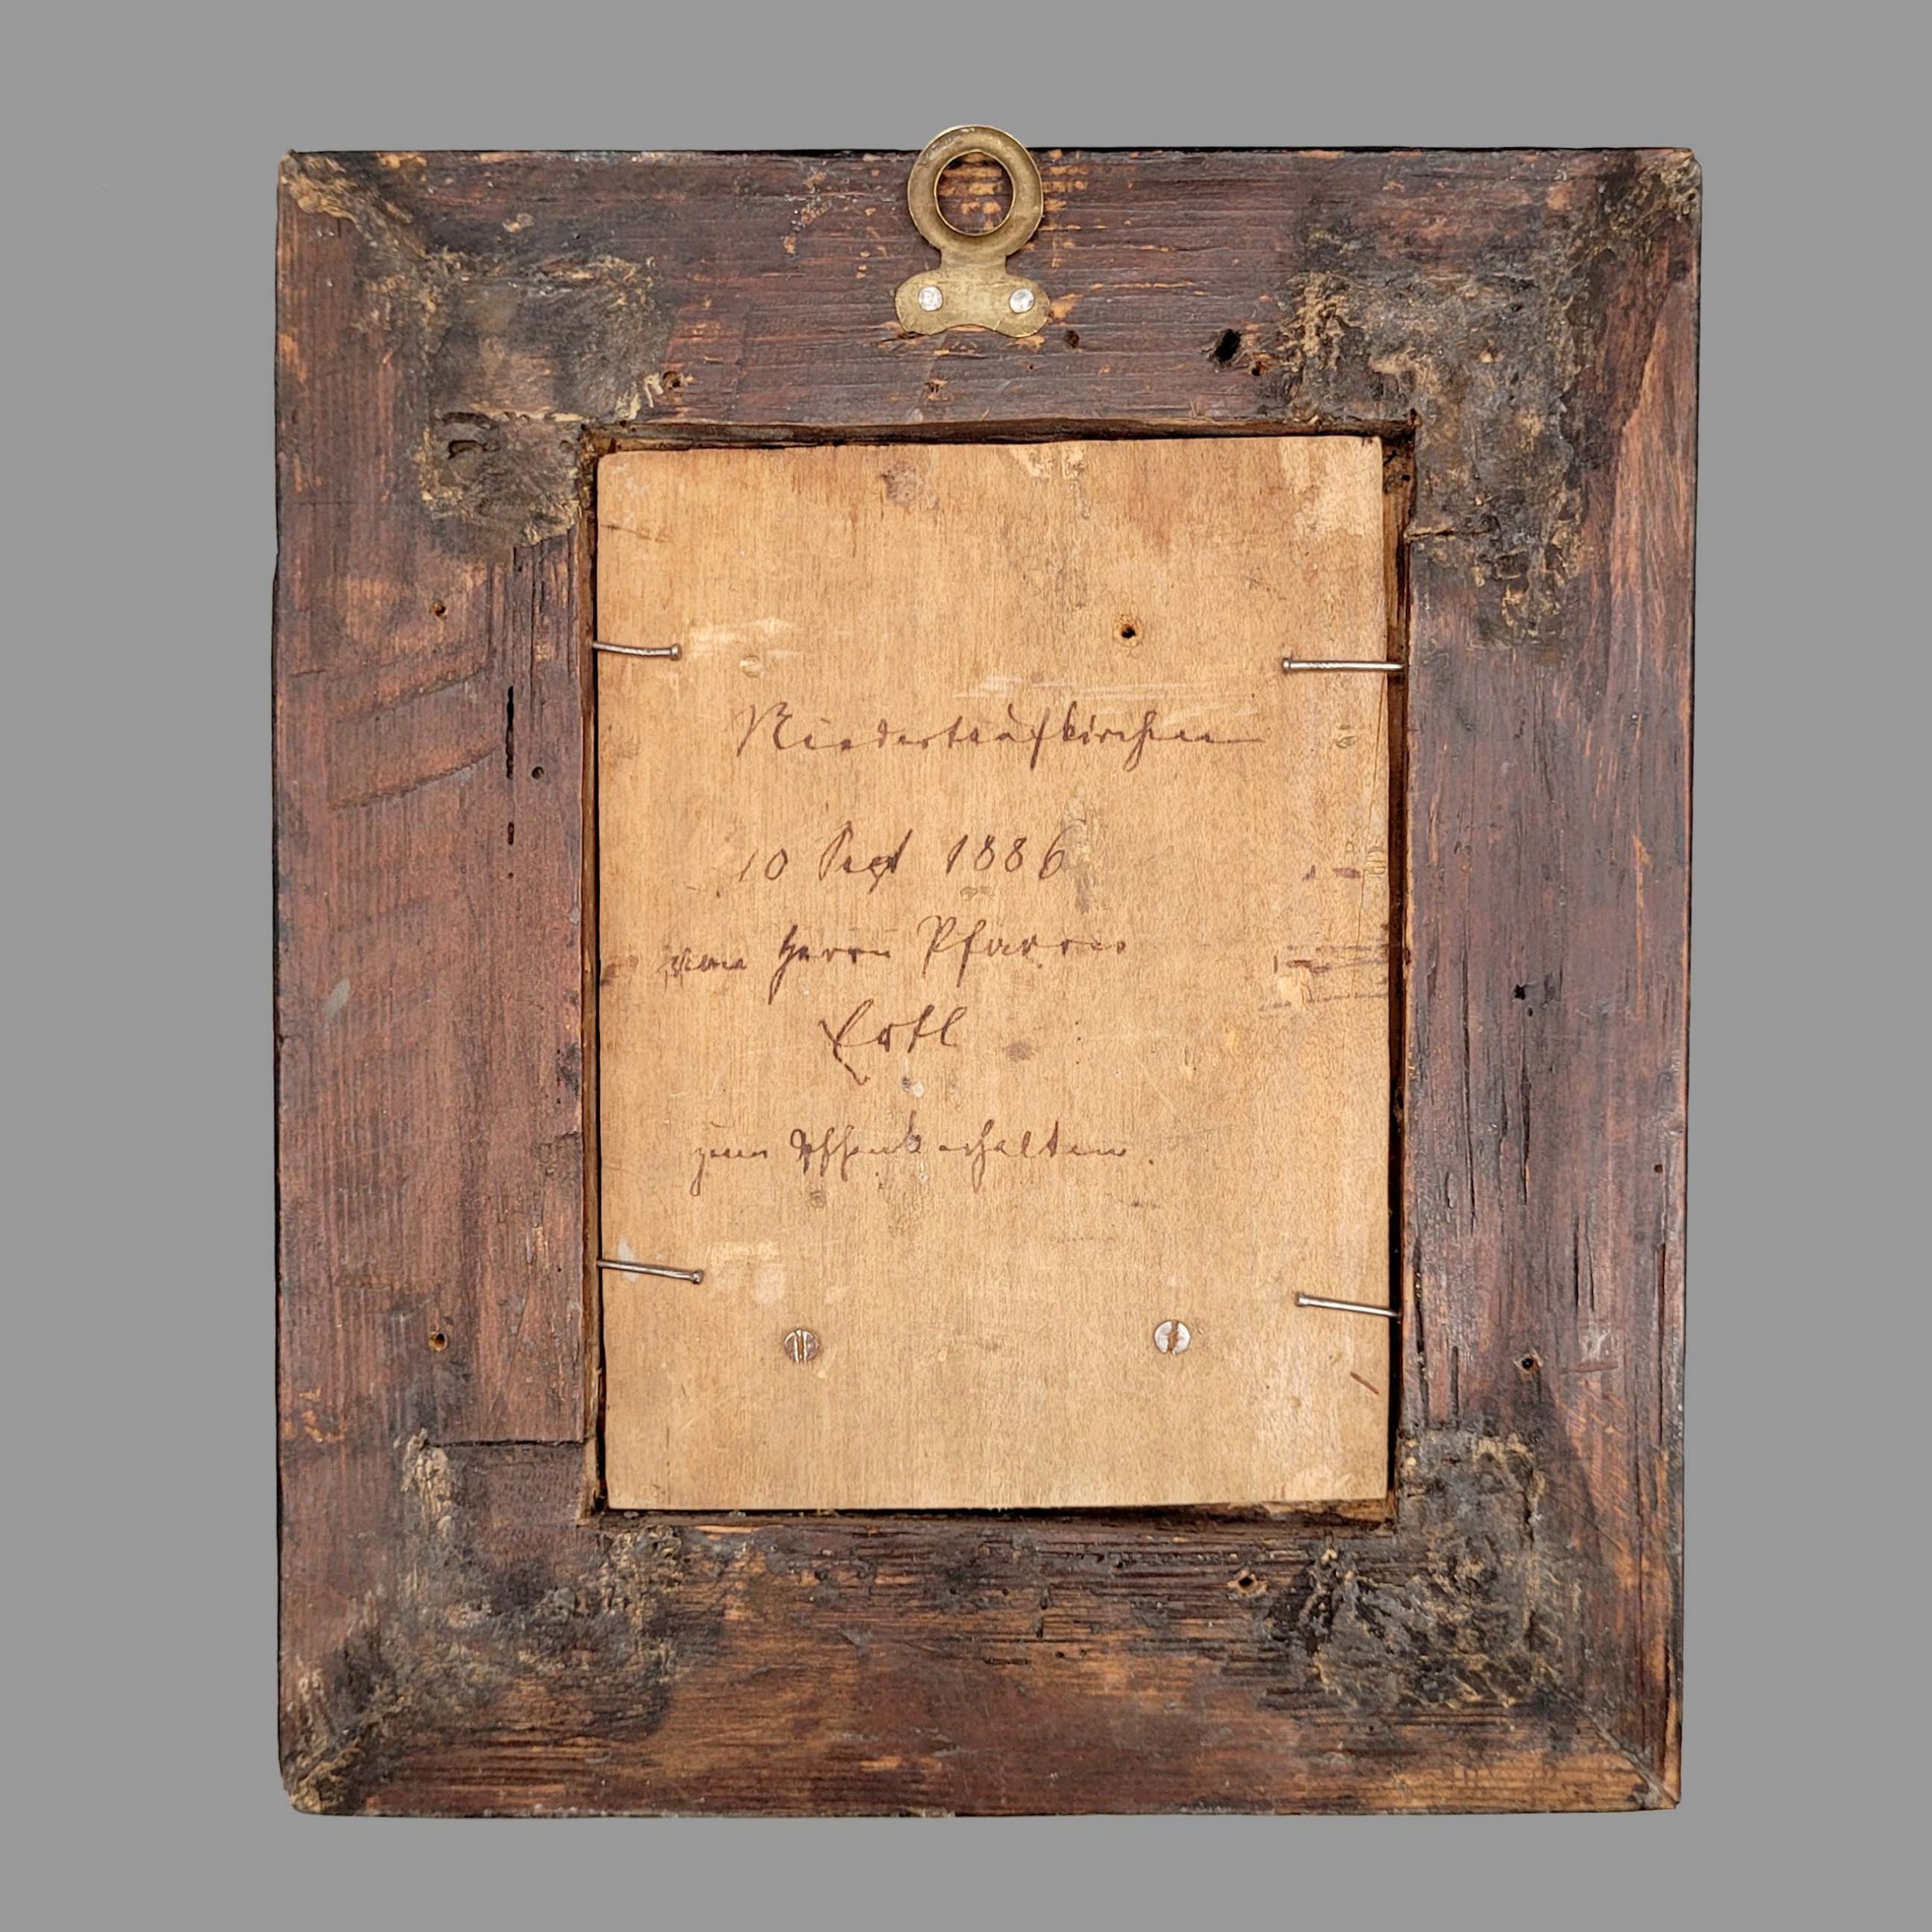 Niedertaufkirchen
10 Sept 1886
vom Herrn Pfarrer
Ertl
zum Gschenk erhalten.